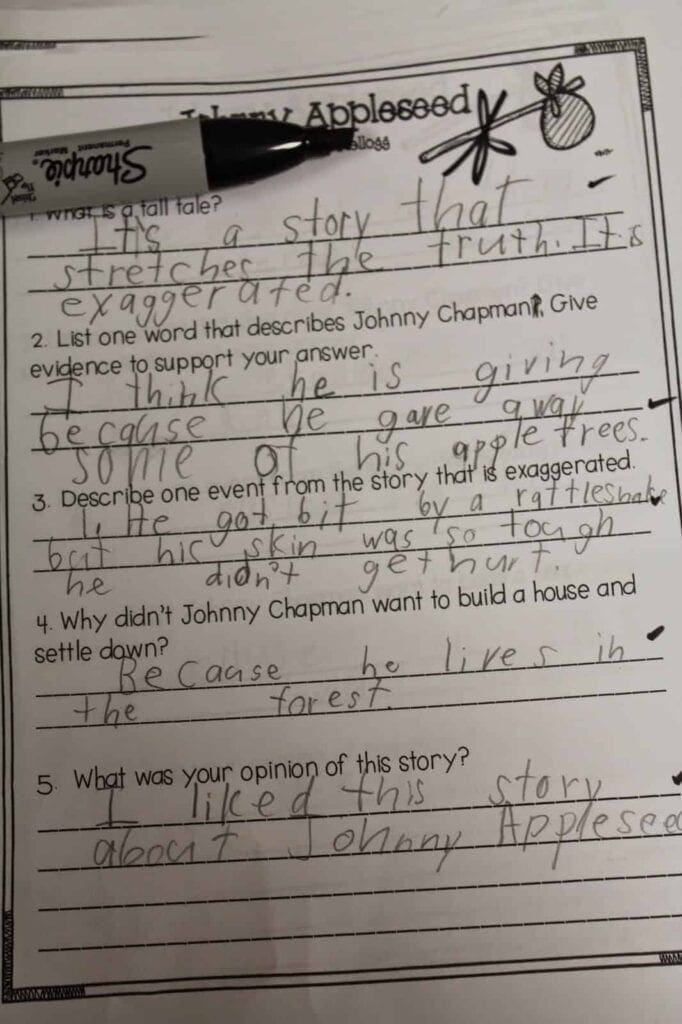 Johnny Appleseed
Kellogg
Sharpie®
Permanent Marker
1. What is a tall tale?
It's a story that
stretches the truth. It is
exaggerated.
2. List one word that describes Johnny Chapman. Give
evidence to support your answer.
I think he is giving
because he gave away
some of his apple trees.
3. Describe one event from the story that is exaggerated.
1. He got bit by a rattlesnake
but his skin was so tough
he didn't get hurt.
4. Why didn't Johnny Chapman want to build a house and
settle down?
Because he lives in
the forest.
5. What was your opinion of this story?
I liked this story
about Johnny Appleseed